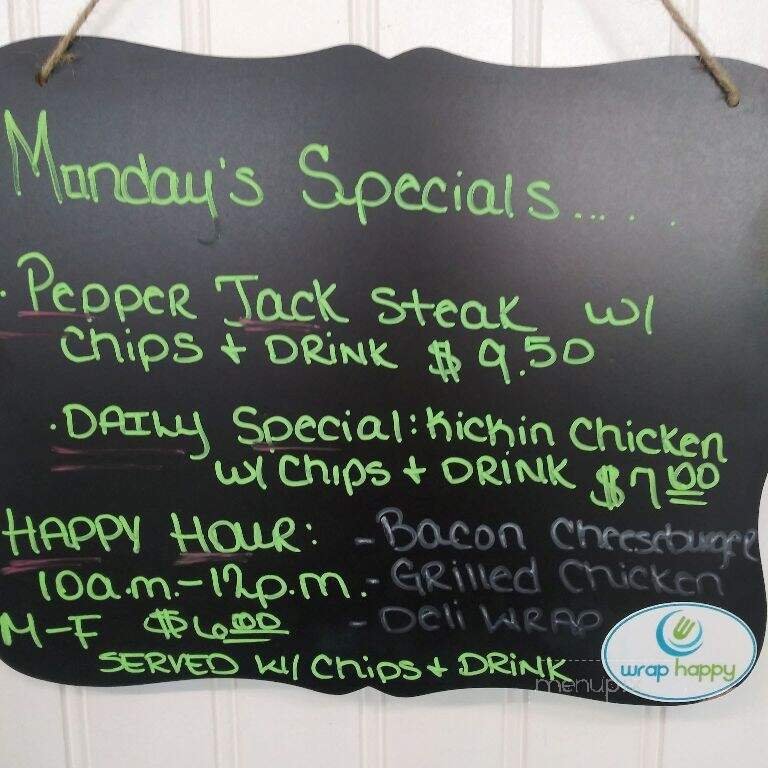 Monday's Specials......
· Pepper Jack Steak w/
Chips + Drink $9.50
· Daily Special: Kickin Chicken
w/ Chips + Drink $7.00
Happy Hour: - Bacon Cheeseburger
10a.m.-12p.m. - Grilled Chicken
M-F $6.00 - Deli Wrap
Served w/ Chips + Drink
wrap happy